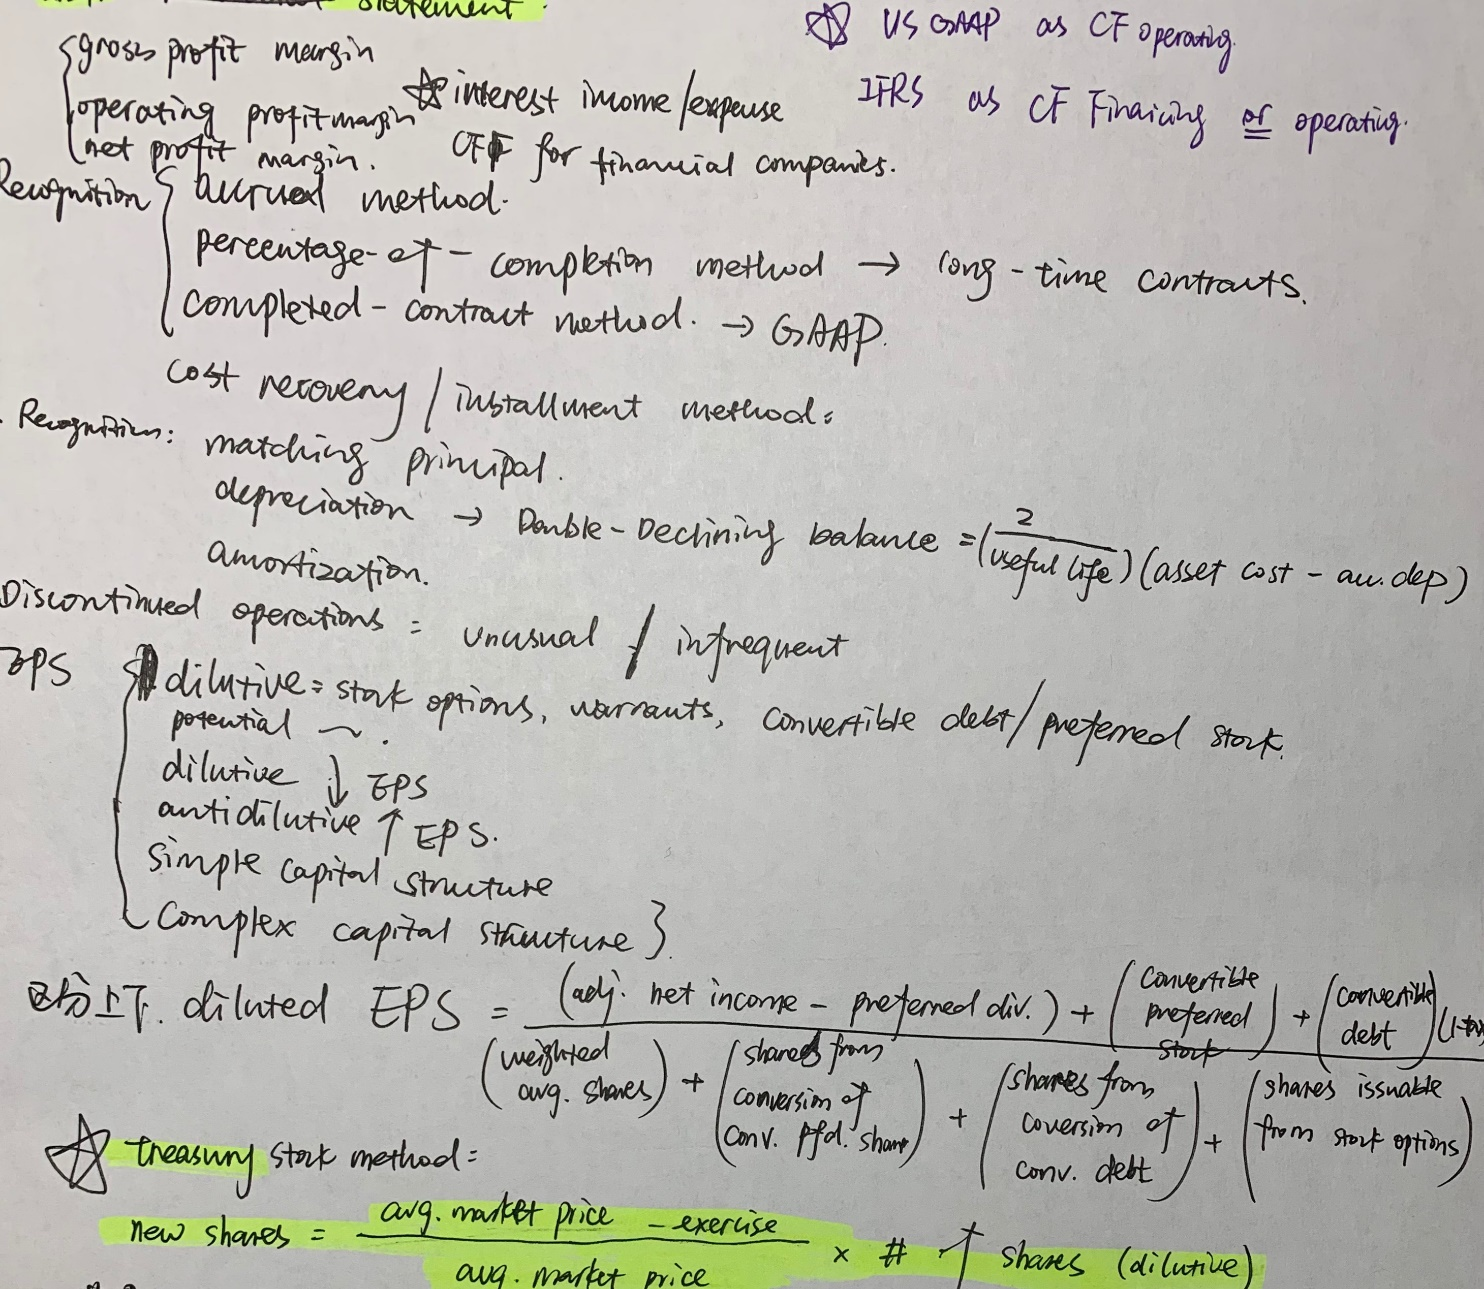 statement.
gross profit margin
operating profit margin
net profit margin.
☆ interest income/expense
CFF for financial companies.
☆ US GAAP as CF operating.
IFRS as CF Finaicing or operating.
Recognition { accrual method.
percentage-of-completion method → long-time contracts.
completed-contract method. → GAAP.
cost recovery / installment method:
Recognition: matching principal.
depreciation → Double-Declining balance = (2/useful life)(asset cost - acc. dep)
amortization.
Discontinued operations: unusual / infrequent
EPS { dilutive = stock options, warrants, convertible debt/preferred stock.
potential ~.
dilutive ↓ EPS
antidilutive ↑ EPS.
simple capital structure
complex capital structure }
上下. diluted EPS = (adj. net income - preferred div.) + (convertible preferred stock) + (convertible debt)(1-
(weighted avg. shares) + (shares from conversion of conv. pfd. share) + (shares from coversion of conv. debt) + (shares issuable from stock options)
☆ treasury stock method:
new shares = avg. market price - exercise / avg. market price × # shares (dilutive)